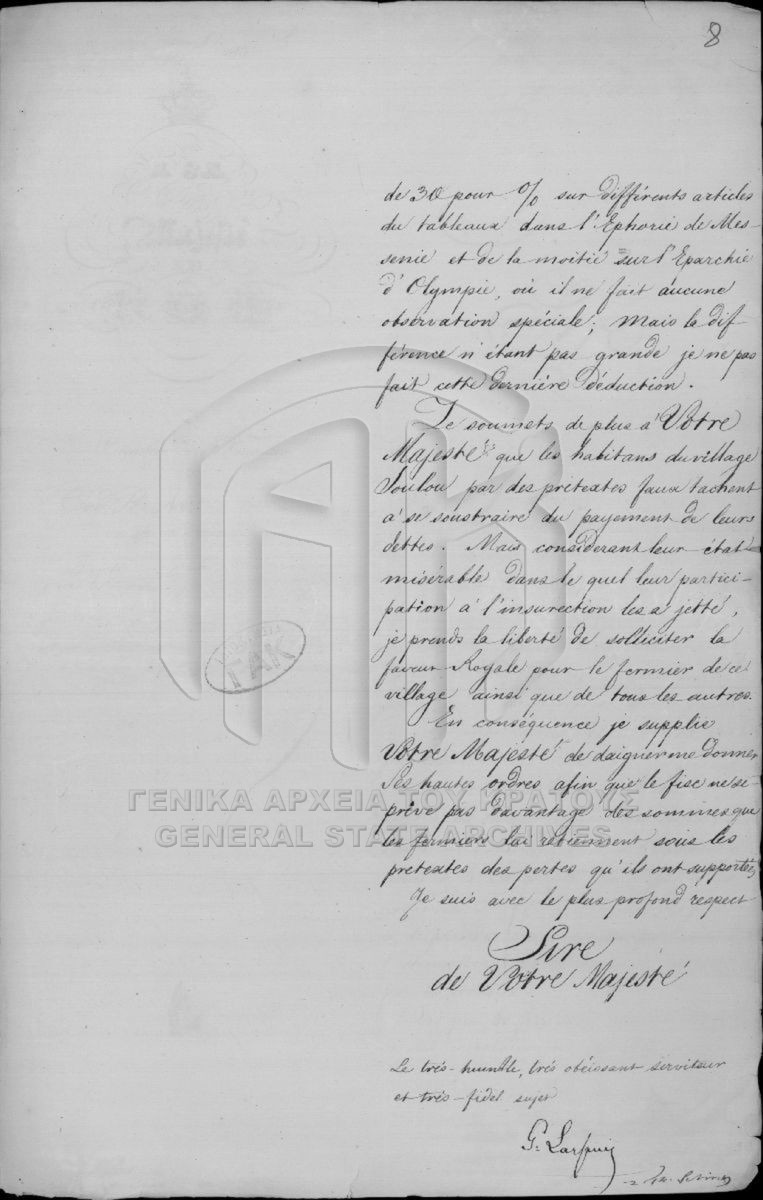 8
de 30 pour % sur différents articles
du tableaux dans l'Ephorie de Mes-
senie et de la moitié sur l'Eparchie
d'Olympie, où il ne fait aucune
observation spéciale; Mais la dif-
férence n'étant pas grande je ne pas
fait cette dernière déduction.
Je soumets de plus à Votre
Majesté que les habitans du village
Soulou par des prétextes faux tachent
à se soustraire du payement de leurs
dettes. Mais considerant leur état
misérable dans le quel leur partici-
pation à l'insurection les a jetté,
je prends la liberté de solliciter la
faveur Royale pour le fermier de ce
village ainsi que de tous les autres.
En conséquence je supplie
Votre Majesté de daigner me donner
Ses hautes ordres afin que le fisc ne se
prive pas davantage des sommes que
les fermiers lui retiennent sous les
pretextes des pertes qu'ils ont supportés
Je suis avec le plus profond respect
Sire
de Votre Majesté
Le trés-humble, trés obéissant serviteur
et trés-fidel sujet
G.
ΓΑΚ
ΓΕΝΙΚΑ ΑΡΧΕΙΑ ΤΟΥ ΚΡΑΤΟΥΣ
GENERAL STATE ARCHIVES